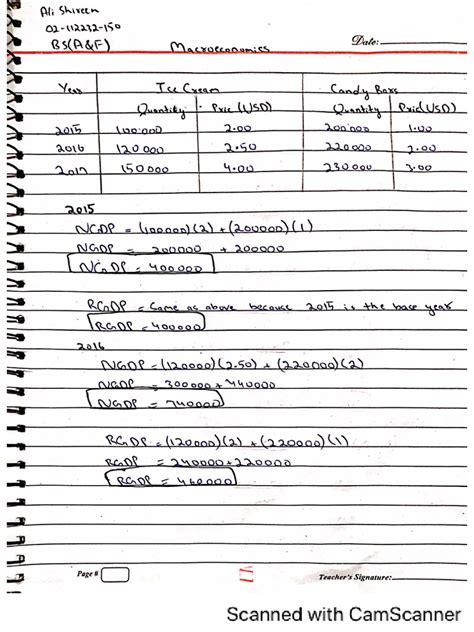 Ali Shireen
02-112232-150
BS(A&F) Macroeconomics Date:
Year Ice Cream Candy Bars
Quantity Price (USD) Quantity Price(USD)
2015 100000 2.00 200000 1.00
2016 120000 2.50 220000 2.00
2017 150000 4.00 230000 3.00
2015
NGDP = (100000)(2) + (200000)(1)
NGDP = 200000 + 200000
NGDP = 400000
RGDP = Same as above because 2015 is the base year
RGDP = 400000
2016
NGDP = (120000)(2.50) + (220000)(2)
NGDP = 300000 + 440000
NGDP = 740000
RGDP = (120000)(2) + (220000)(1)
RGDP = 240000 + 220000
RGDP = 460000
Page # Teacher's Signature:
Scanned with CamScanner